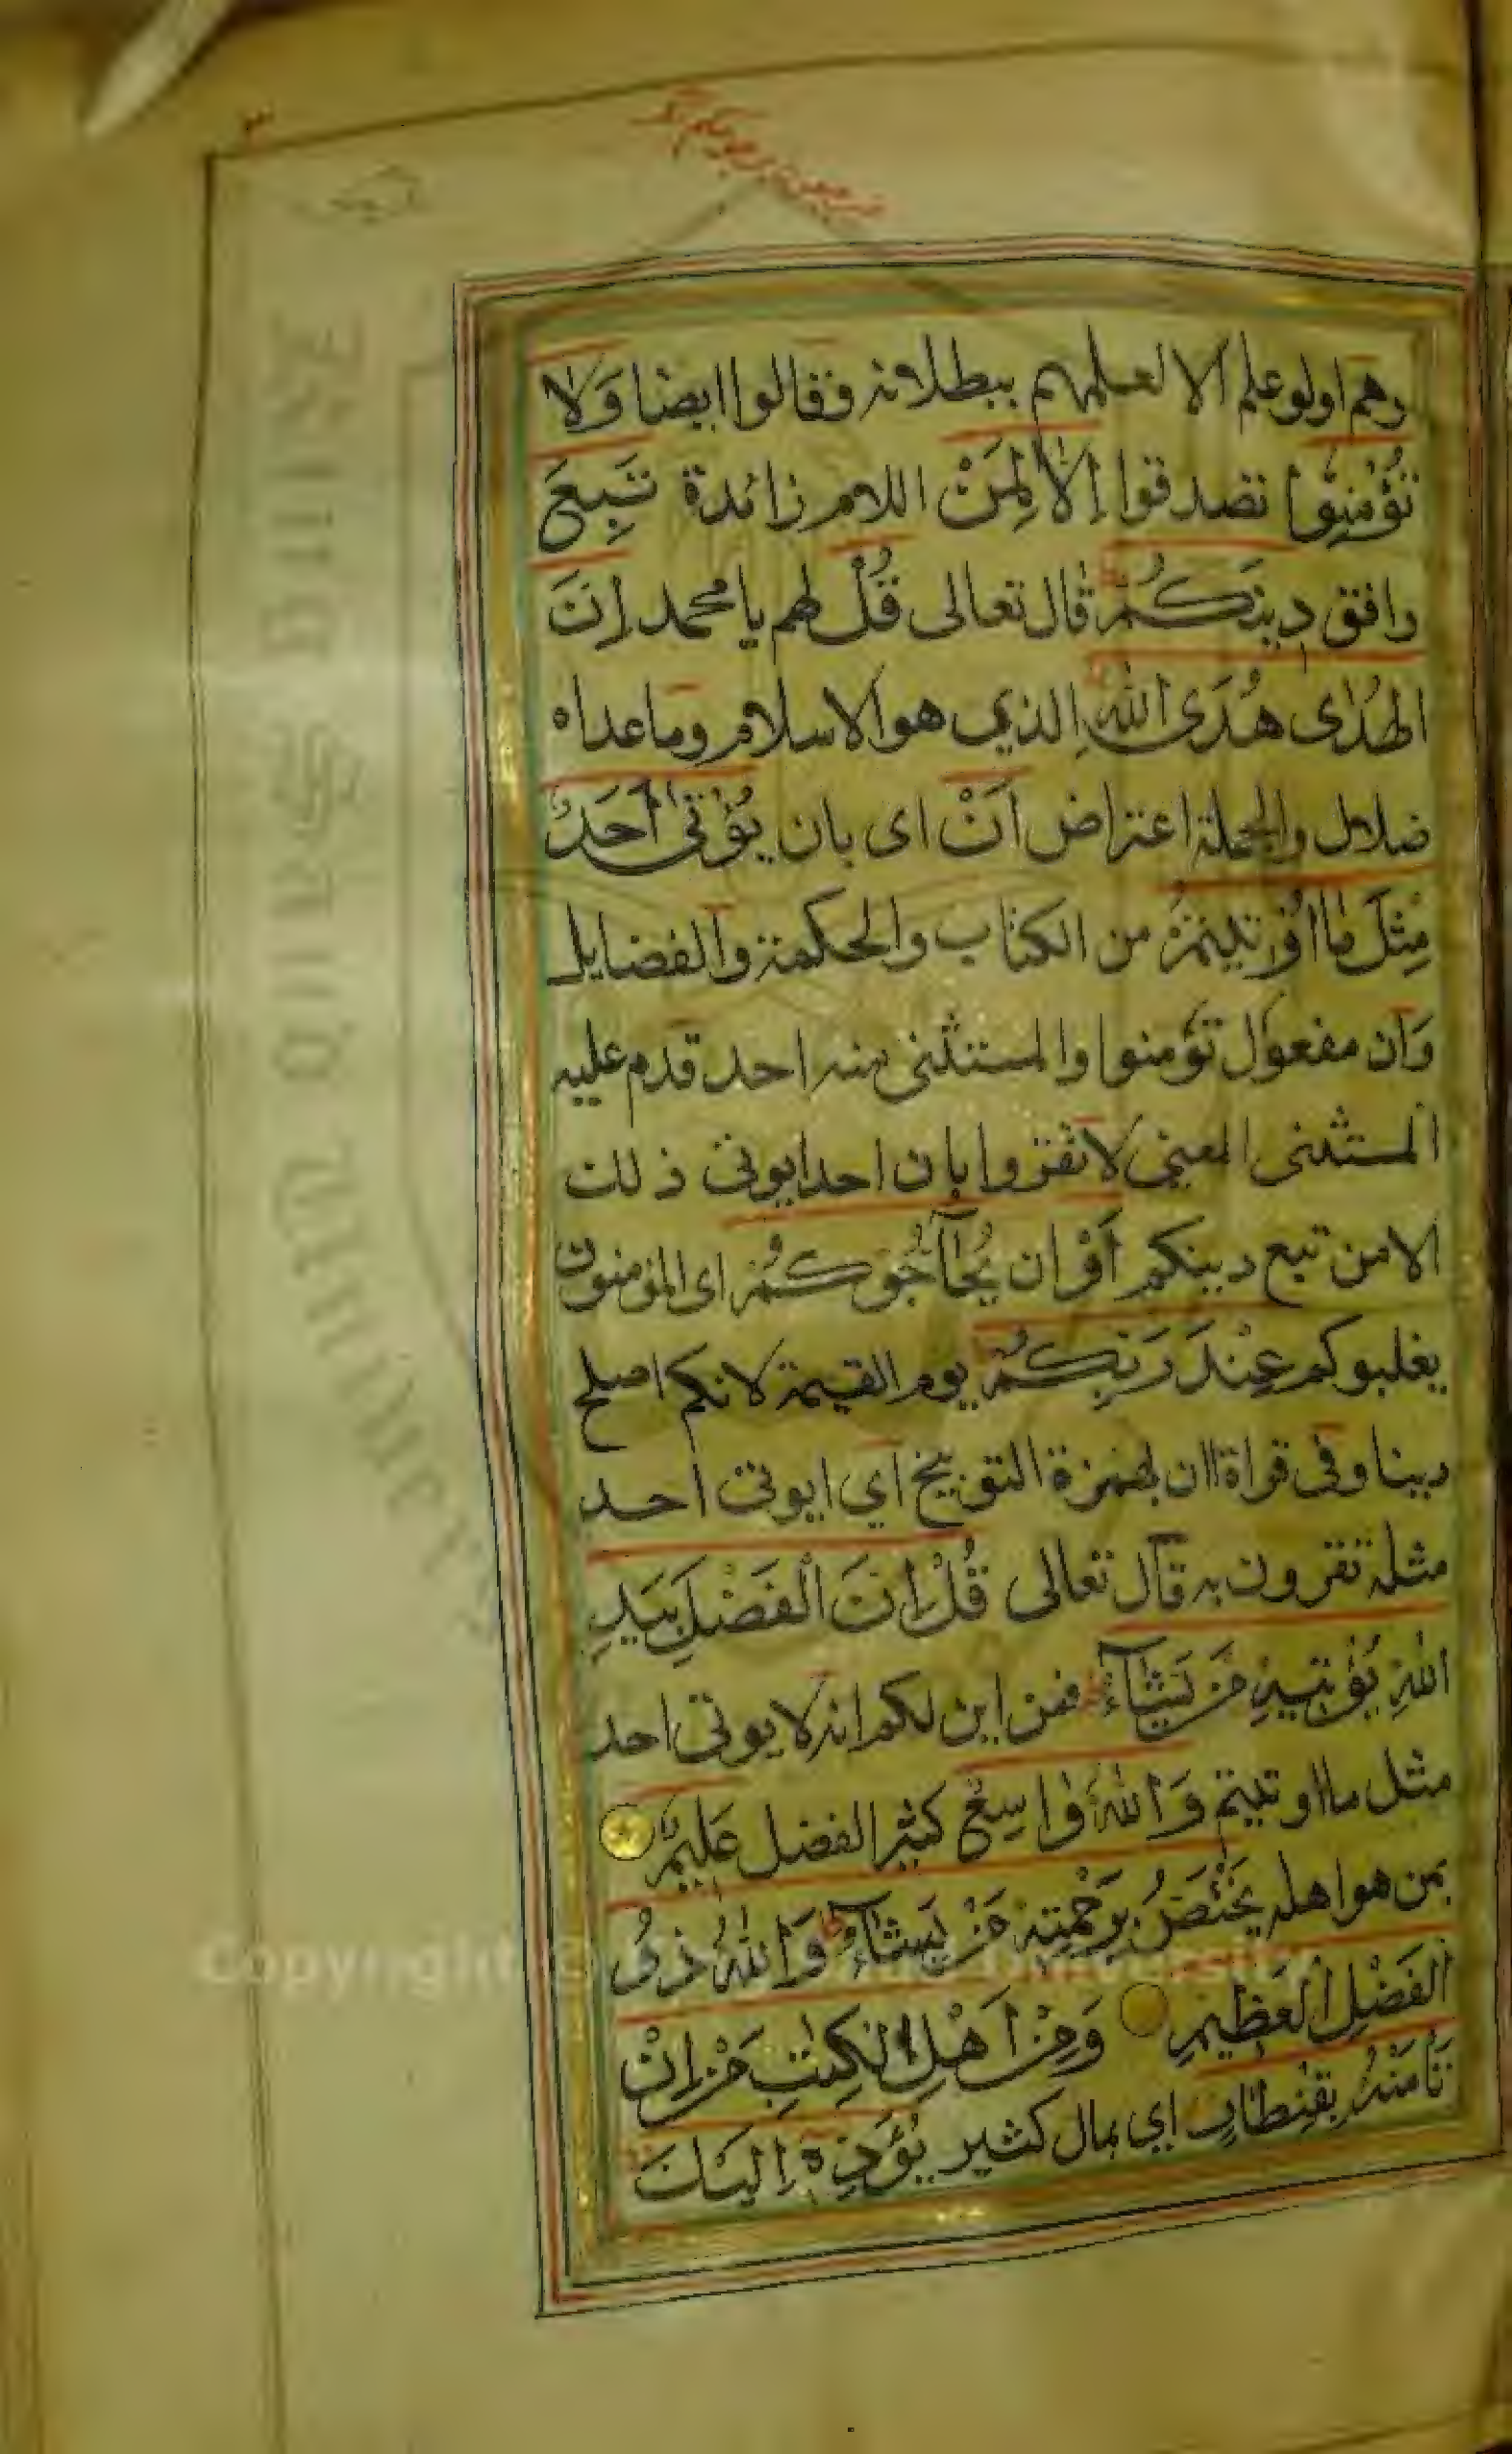 وهم اولو علم الا لعلمهم ببطلانه وقالوا ايضا وَلا
تُؤْمِنُوا تصدقوا اِلّا لِمَنْ اللام زائدة تَبِعَ
وافق دِينَكُمْ قال تعالى قُلْ لهم يا محمد اِنَّ
الهُدٰى هُدَى اللهِ الذي هو الاسلام وما عداه
ضلال والجملة اعتراض اَنْ اى بان يُؤْتٰى اَحَدٌ
مِثْلَ مَا اُوْتِيتُمْ من الكتاب والحكمة والفضايل
وَان مفعول تؤمنوا والمستثنى منه احد قدم عليه
المستثنى المعنى لا تقروا بان احدا يوتى ذلك
الا من تبع دينكم اَوْ ان يُحَآجُّوكُمْ اى المؤمنون
يغلبوكم عِنْدَ رَبِّكُمْ يوم القيمة لانكم اصلح
دينا وفى قراة اان بهمزة التوبيخ اي ايوتى احد
مثله تقرون به قال تعالى قُلْ اِنَّ الْفَضْلَ بِيَدِ
اللهِ يُؤْتِيهِ مَنْ يَشَآءُ فمن اين لكم انه لا يوتى احد
مثل ما اوتيتم وَاللهُ وَاسِعٌ كثير الفضل عَلِيمٌ
بمن هو اهله يَخْتَصُّ بِرَحْمَتِهِ مَنْ يَشَآءُ وَاللهُ ذُو
الْفَضْلِ الْعَظِيمِ وَمِنْ اَهْلِ الْكِتٰبِ مَنْ اِنْ
تَاْمَنْهُ بِقِنْطَارٍ اي بمال كثير يُؤَدِّهِ اِلَيْكَ
Copyright © King Saud University
King Saud University